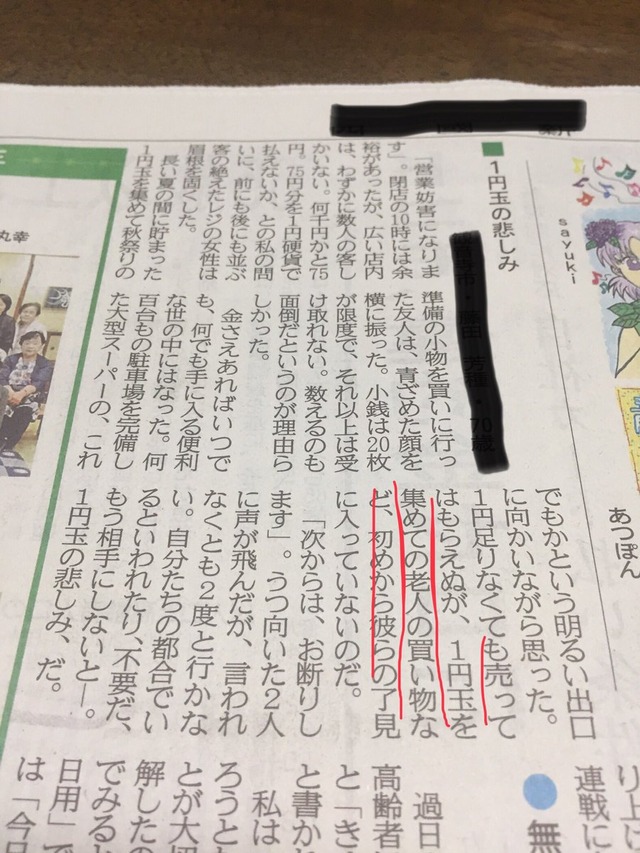 sayuki
あつぽん
1円玉の悲しみ
「営業妨害になりま
す」。閉店の10時には余
裕があったが、広い店内
は、わずかに数人の客し
かいない。何千円かと75
円。75円分を1円硬貨で
払えないか、との私の問
いに、前にも後にも並ぶ
客の絶えたレジの女性は
眉根を固くした。
長い夏の間に貯まった
1円玉を集めて秋祭りの
準備の小物を買いに行っ
た友人は、青ざめた顔を
横に振った。小銭は20枚
が限度で、それ以上は受
け取れない。数えるのも
面倒だというのが理由ら
しかった。
金さえあればいつで
も、何でも手に入る便利
な世の中にはなった。何
百台もの駐車場を完備し
た大型スーパーの、これ
でもかという明るい出口
に向かいながら思った。
1円足りなくても売って
はもらえぬが、1円玉を
集めての老人の買い物な
ど、初めから彼らの了見
に入っていないのだ。
「次からは、お断りし
ます」。うつ向いた2人
に声が飛んだが、言われ
なくとも2度と行かな
い。自分たちの都合でい
るといわれたり、不要だ、
もう相手にしないと―。
1円玉の悲しみ、だ。
丸幸
り上に
連戦に
無
過日
高齢者
と「き
と書か
私は
ろうと
とが大
解した
でみる
日用」で
は「今日